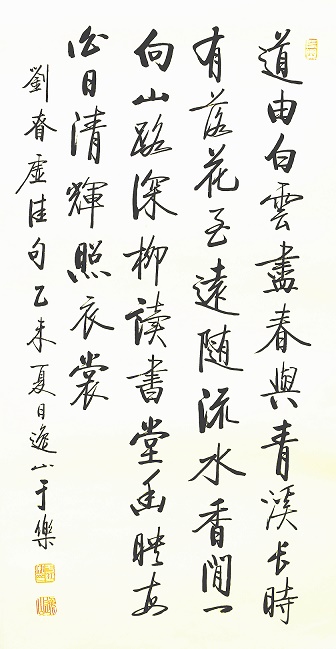 道由白雲盡春與青溪長時
有落花至遠隨流水香閒門
向山路深柳讀書堂幽映每
白日清輝照衣裳
劉眘虛佳句乙未夏日逸山于樂